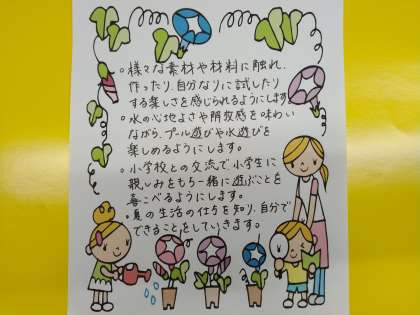 。様々な素材や材料に触れ、
作ったり、自分なりに試したり
する楽しさを感じられるようにします。
。水の心地よさや開放感を味わい
ながら、プール遊びや水遊びを
楽しめるようにします。
。小学校との交流で小学生に
親しみをもち一緒に遊ぶことを
喜こべるようにします。
。夏の生活の仕方を知り、自分で
できることをしていきます。